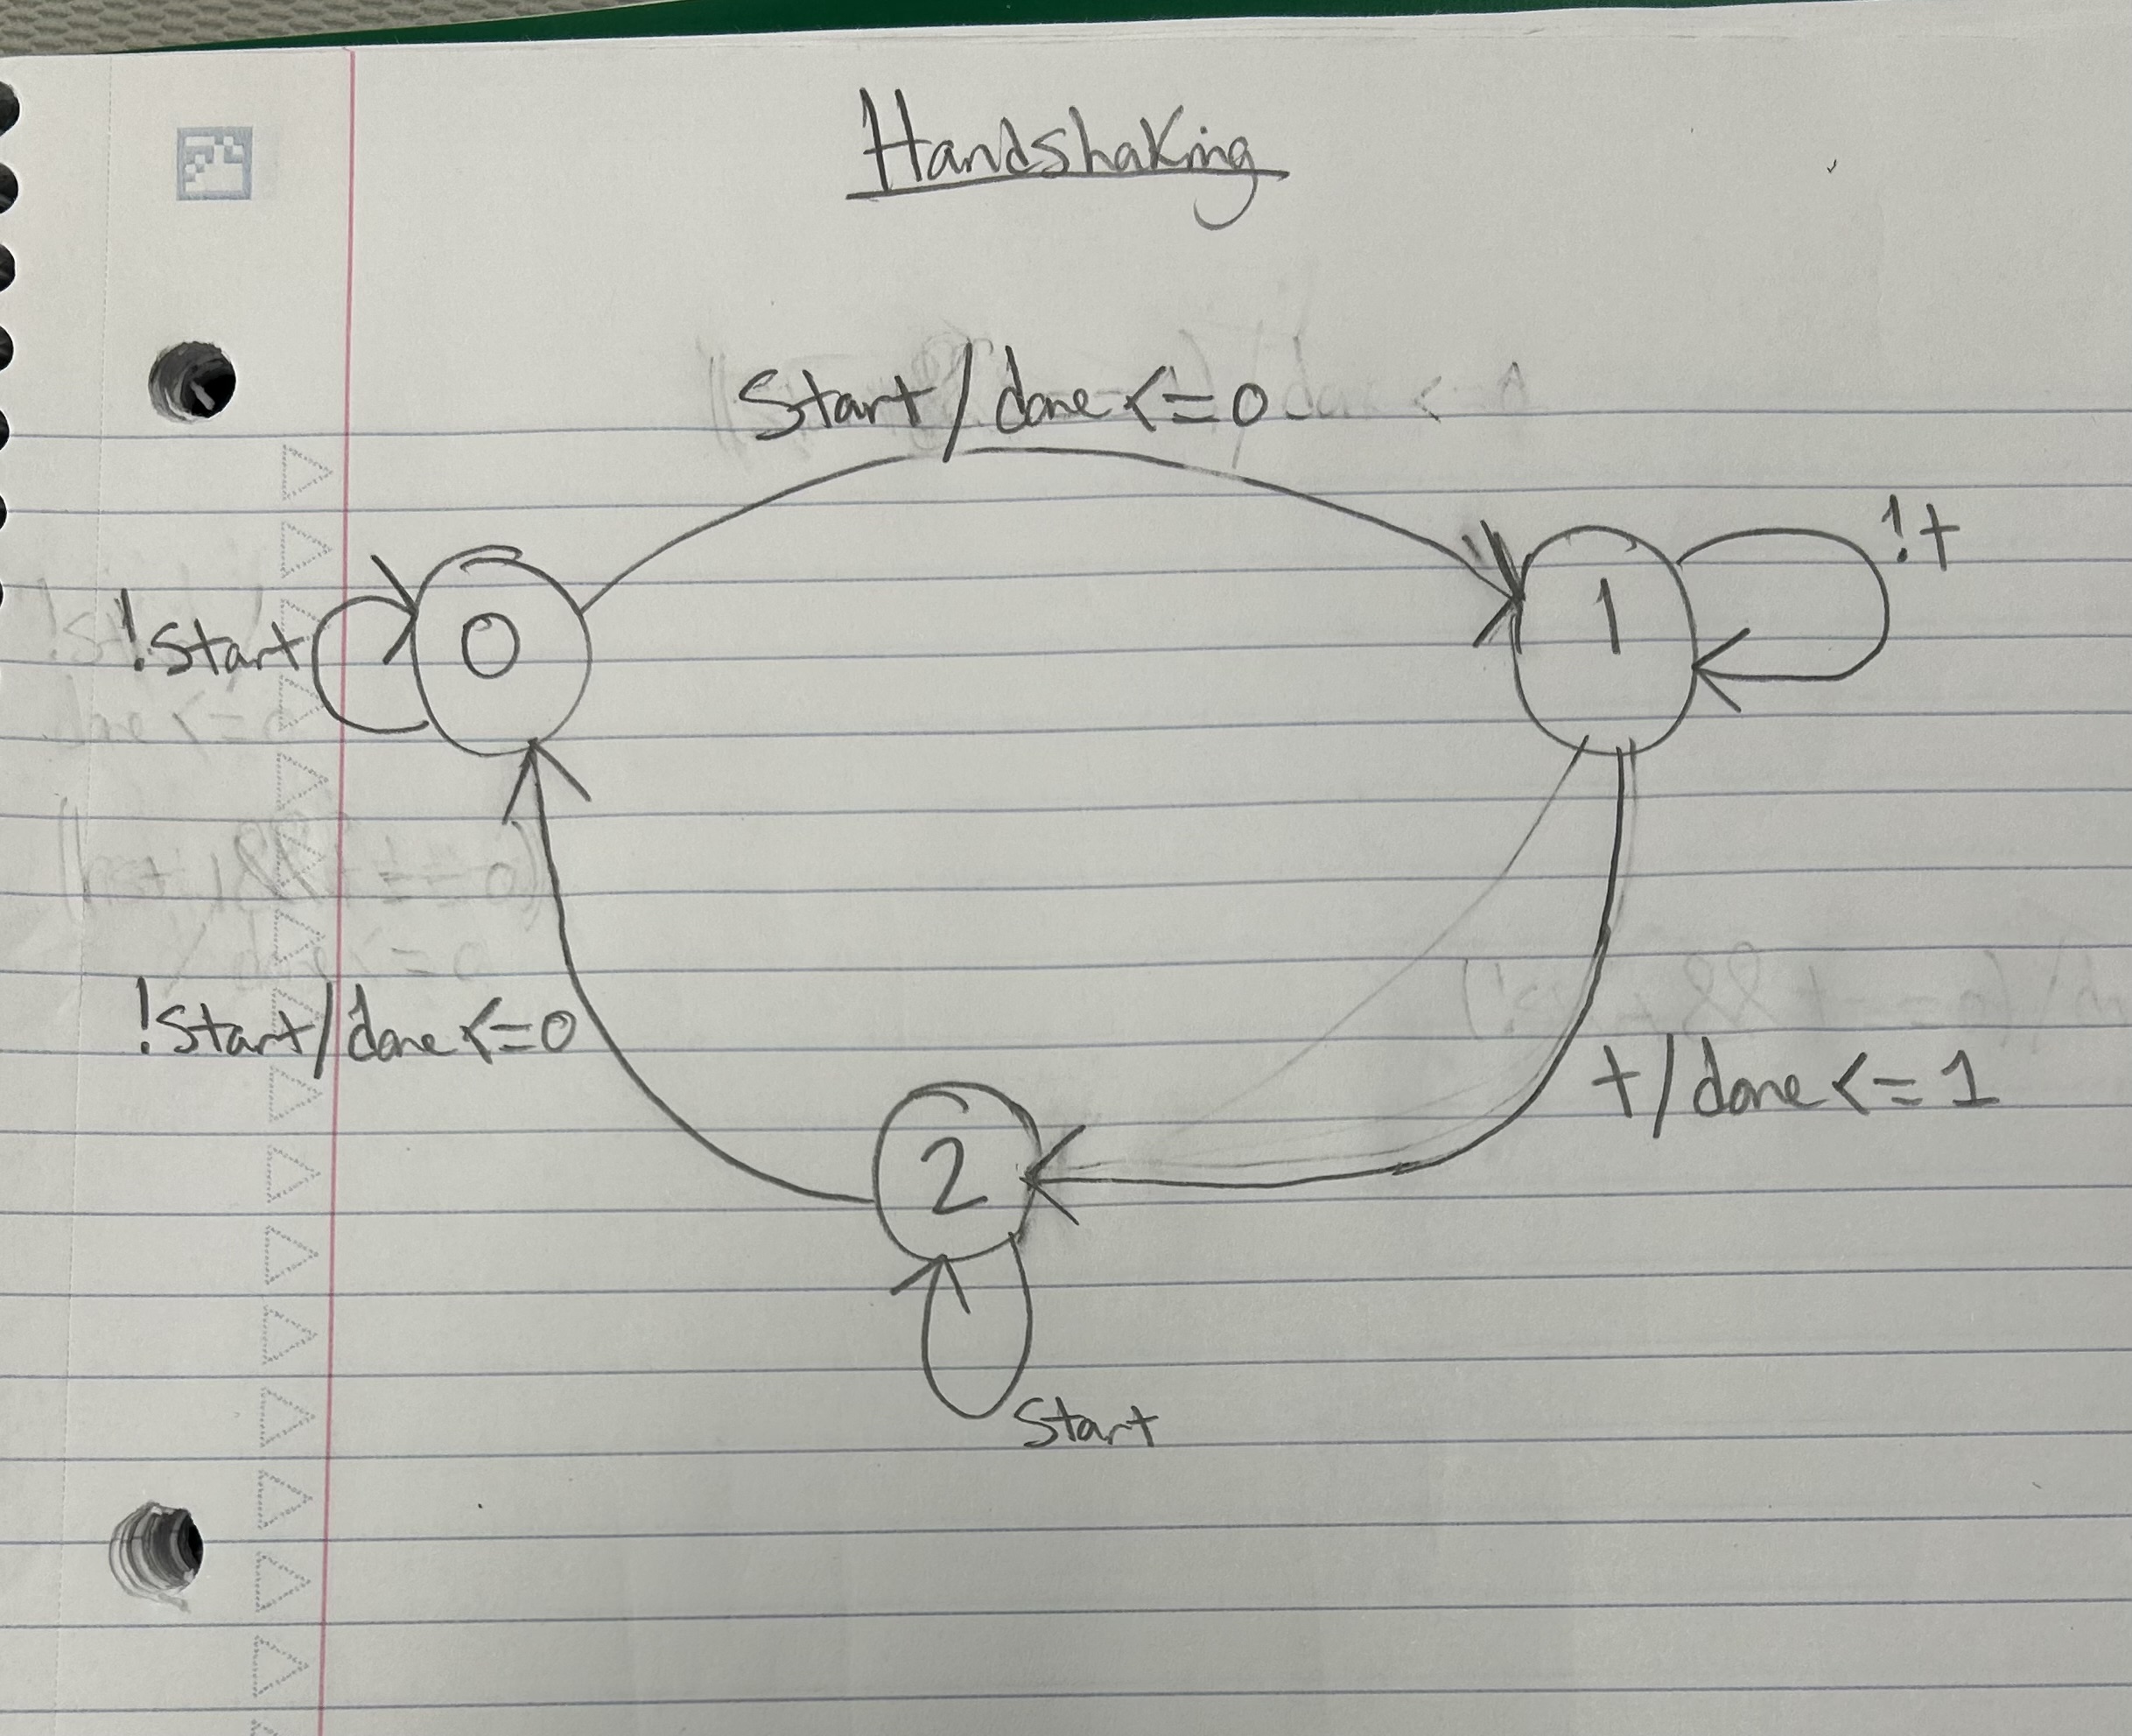 Handshaking
Start/done<=0
!t
!Start
0
1
!Start/done<=0
t/done<=1
2
Start